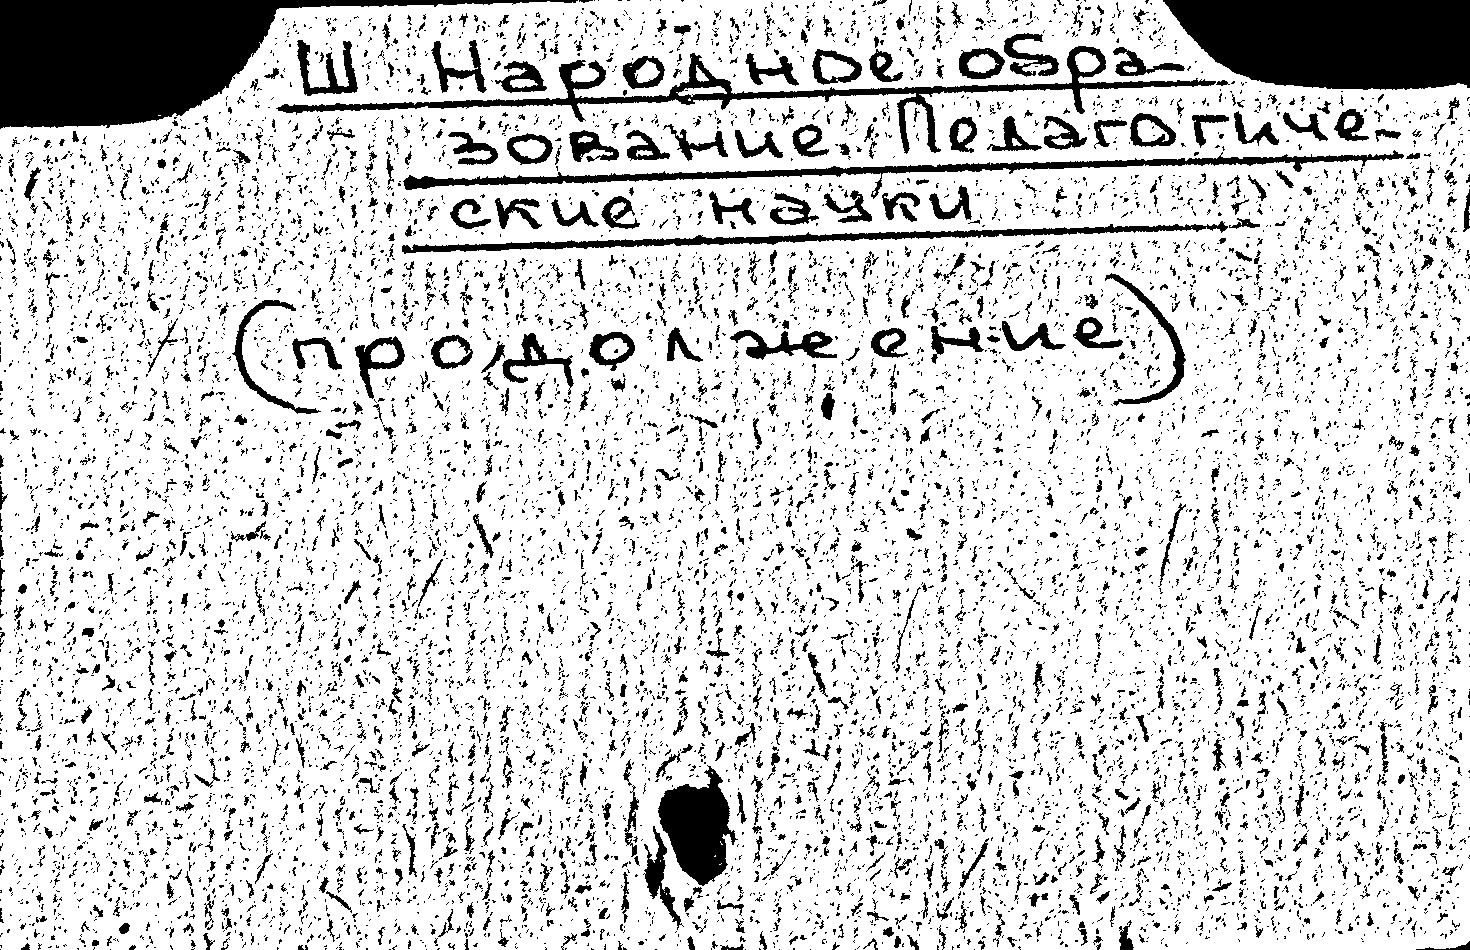 Ш Народное обра-
зование. Педагогиче-
ские науки
(продолжение)